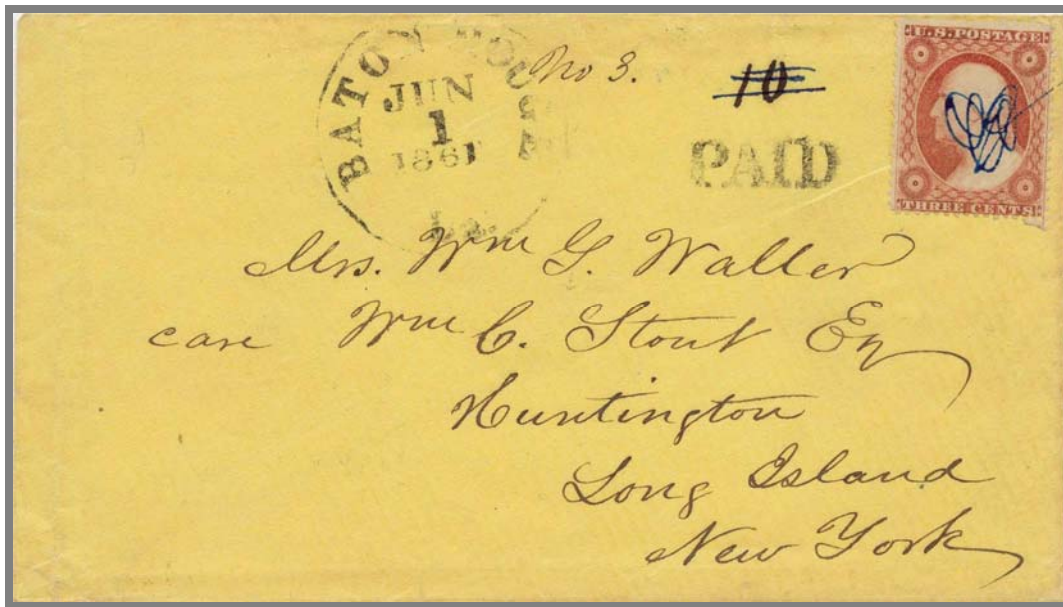 BATON ROUGE
JUN
1
1861
La.
No 3.
10
PAID
U.S. POSTAGE
THREE CENTS
Mrs. Wm G. Waller
care Wm C. Stout Eq
Huntington
Long Island
New York